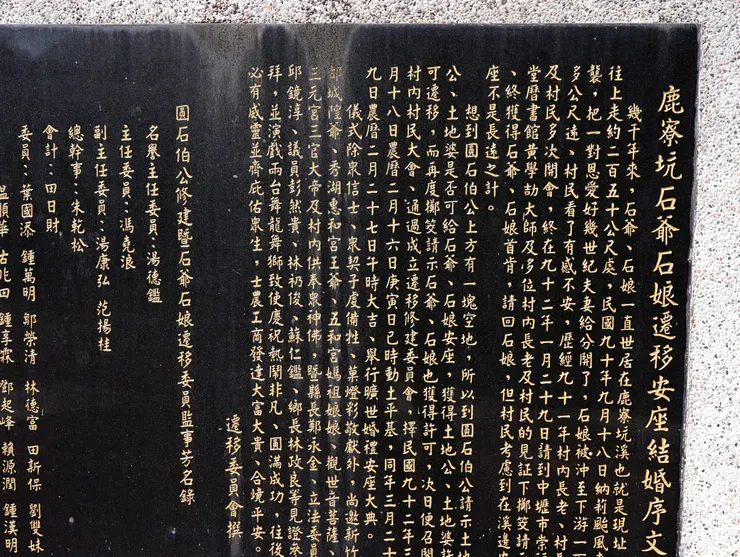 鹿寮坑石爺石娘遷移安座結婚序文
幾千年來，石爺、石娘一直世居在鹿寮坑溪也就是現址
往上走約二百五十公尺處，民國九十年九月十八日納莉颱風
襲，把一對恩愛好幾世紀夫妻給分開了，石娘被沖至下游一
多公尺遠、村民看了有感不安，歷經九十一年村內長老、村
及村民多次開會，終在九十二年一月二十九日請到中壢市學
堂曆書館黃學劼大師及多位村內長老及村民的見証下擲筊請
、終獲得石爺、石娘首肯，請回石娘，但村民考慮到在溪邊
座不是長遠之計。
想到圓石伯公上方有一塊空地，所以到圓石伯公請示土地
公、土地婆是否可給石爺、石娘安座，獲得土地公、土地婆許
可遷移，而再度擲筊請示石爺、石娘也獲得許可，次日便召開
村內村民大會、通過成立遷移修建委員會，擇民國九十二年三
月十八日農曆二月十六日庚寅日己時動土平基，同年三月二十
九日農曆二月二十七日午時大吉、舉行曠世婚禮安座大典。
儀式除眾信士、眾契子虔備牲、菓燈彩敬獻外，尚邀新竹
都城隍爺、秀湖惠和宮王爺、五和宮媽祖娘娘、觀世音菩薩、
三元宮三官大帝及村內供奉眾神佛，暨縣長鄭永金、立法委員
邱鏡淳、議員彭然貴、林礽俊、蘇仁鑑、鄉長林政良等見證參
拜，並演戲兩台舞龍舞獅致使慶祝熱鬧非凡、圓滿成功，往後
必有威靈並齊庇佑眾生，士農工商發達大富大貴、合境平安。
遷移委員會撰
圓石伯公修建暨石爺石娘遷移委員監事芳名錄
名譽主任委員：湯德鑑
主任委員：馮堯浪
副主任委員：湯康弘 范揚桂
總幹事：朱乾松
會計：田日財
委員：葉國添 鍾萬明 鄒榮清 林德富 田新保 劉雙妹
溫順華 古兆田 鍾享霖 鄧起峰 賴源潤 鍾漢明